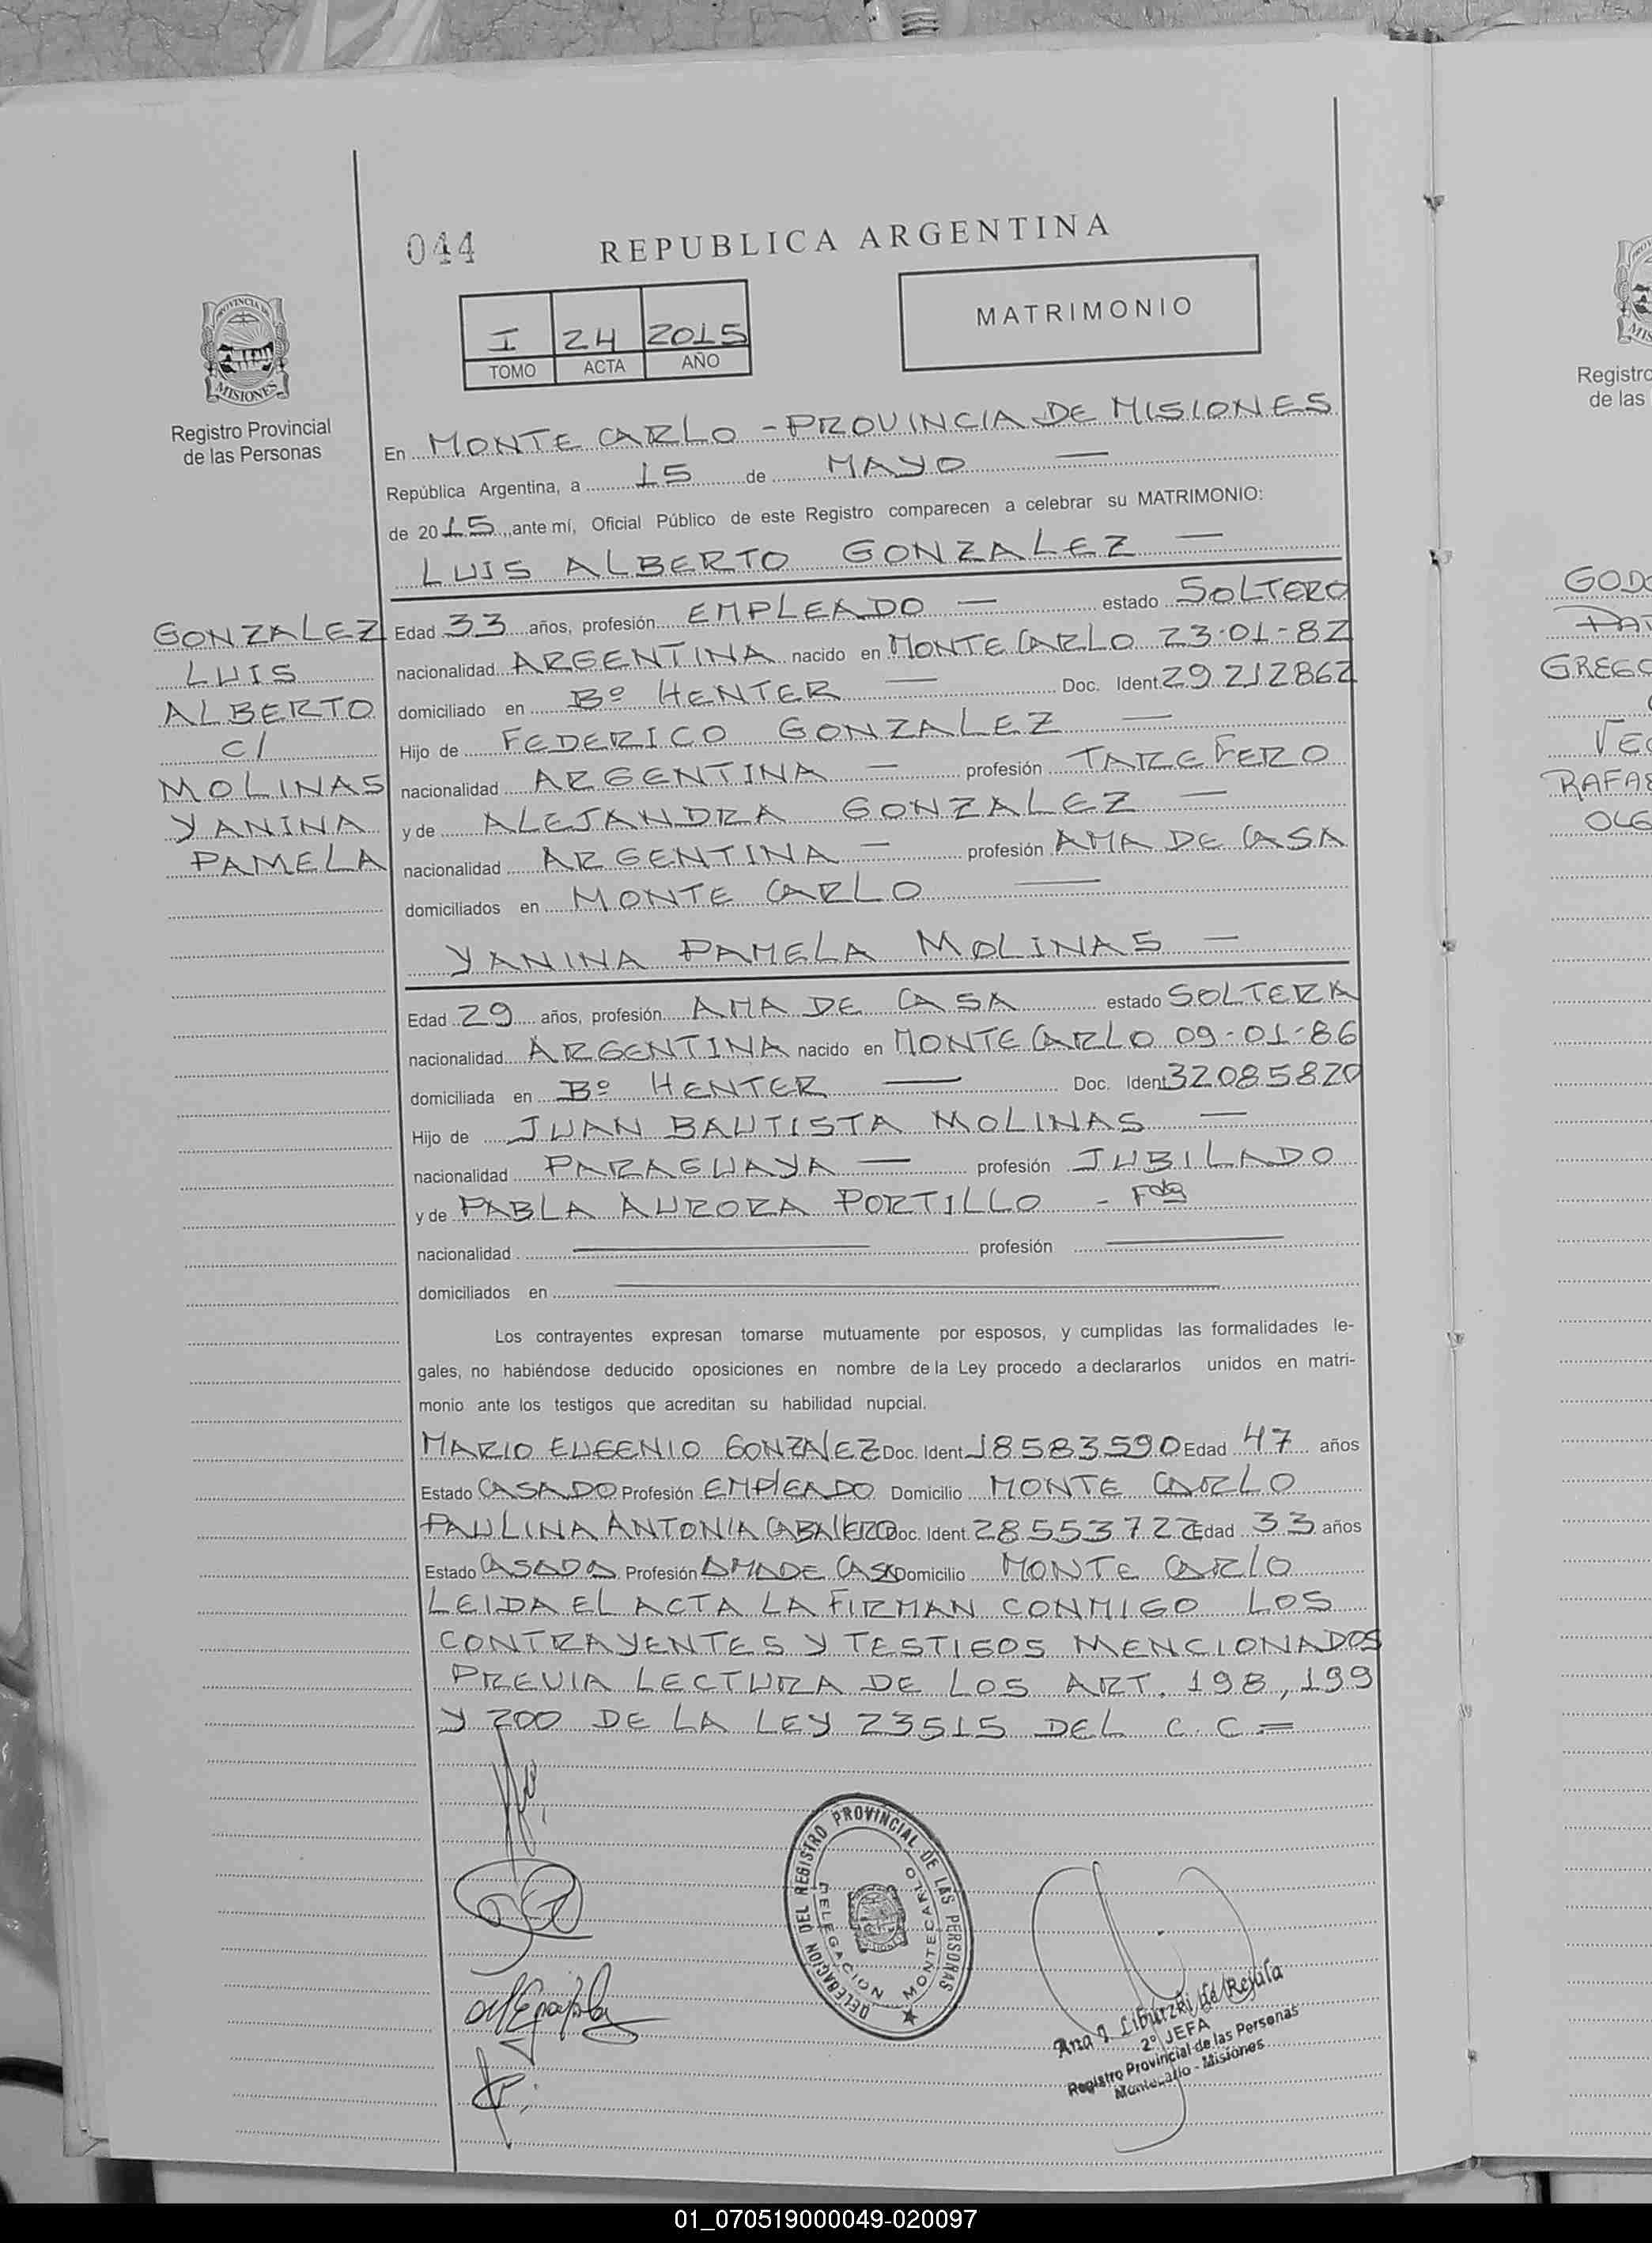 044
REPUBLICA ARGENTINA
PROVINCIA DE
MISIONES
Registro Provincial
de las Personas
I 24 2015
TOMO ACTA AÑO
MATRIMONIO
En MONTE CARLO - PROVINCIA DE MISIONES
República Argentina, a 15 de MAYO —
de 2015 ante mí, Oficial Público de este Registro comparecen a celebrar su MATRIMONIO:
LUIS ALBERTO GONZALEZ —
GONZALEZ
LUIS
ALBERTO
C/
MOLINAS
YANINA
PAMELA
Edad 33 años, profesión EMPLEADO — estado SOLTERO
nacionalidad ARGENTINA nacido en MONTE CARLO 23-01-82
domiciliado en Bº HENTER — Doc. Ident. 29212862
Hijo de FEDERICO GONZALEZ —
nacionalidad ARGENTINA — profesión TAREFERO
y de ALEJANDRA GONZALEZ —
nacionalidad ARGENTINA — profesión AMA DE CASA
domiciliados en MONTE CARLO —
YANINA PAMELA MOLINAS —
Edad 29 años, profesión AMA DE CASA estado SOLTERA
nacionalidad ARGENTINA nacido en MONTE CARLO 09-01-86
domiciliada en Bº HENTER — Doc. Ident 32085820
Hijo de JUAN BAUTISTA MOLINAS —
nacionalidad PARAGUAYA — profesión JUBILADO
y de PABLA AURORA PORTILLO - Fda
nacionalidad — profesión —
domiciliados en —
Los contrayentes expresan tomarse mutuamente por esposos, y cumplidas las formalidades le-
gales, no habiéndose deducido oposiciones en nombre de la Ley procedo a declararlos unidos en matri-
monio ante los testigos que acreditan su habilidad nupcial.
MARIO EUGENIO GONZALEZ Doc. Ident. 18583590 Edad 47 años
Estado CASADO Profesión EMPLEADO Domicilio MONTE CARLO
PAULINA ANTONIA CABALLERO Doc. Ident. 28553727 Edad 33 años
Estado CASADA Profesión AMA DE CASA Domicilio MONTE CARLO
LEIDA EL ACTA LA FIRMAN CONMIGO LOS
CONTRAYENTES Y TESTIGOS MENCIONADOS
PREVIA LECTURA DE LOS ART. 198, 199
Y 200 DE LA LEY 23515 DEL C.C=
DELEGACION DEL REGISTRO PROVINCIAL DE LAS PERSONAS
DELEGACION MONTECARLO
2º JEFA
Registro Provincial de las Personas
Montecarlo - Misiones
Registro
de las
GODO
GREGO
RAFAE
OLG
01_070519000049-020097